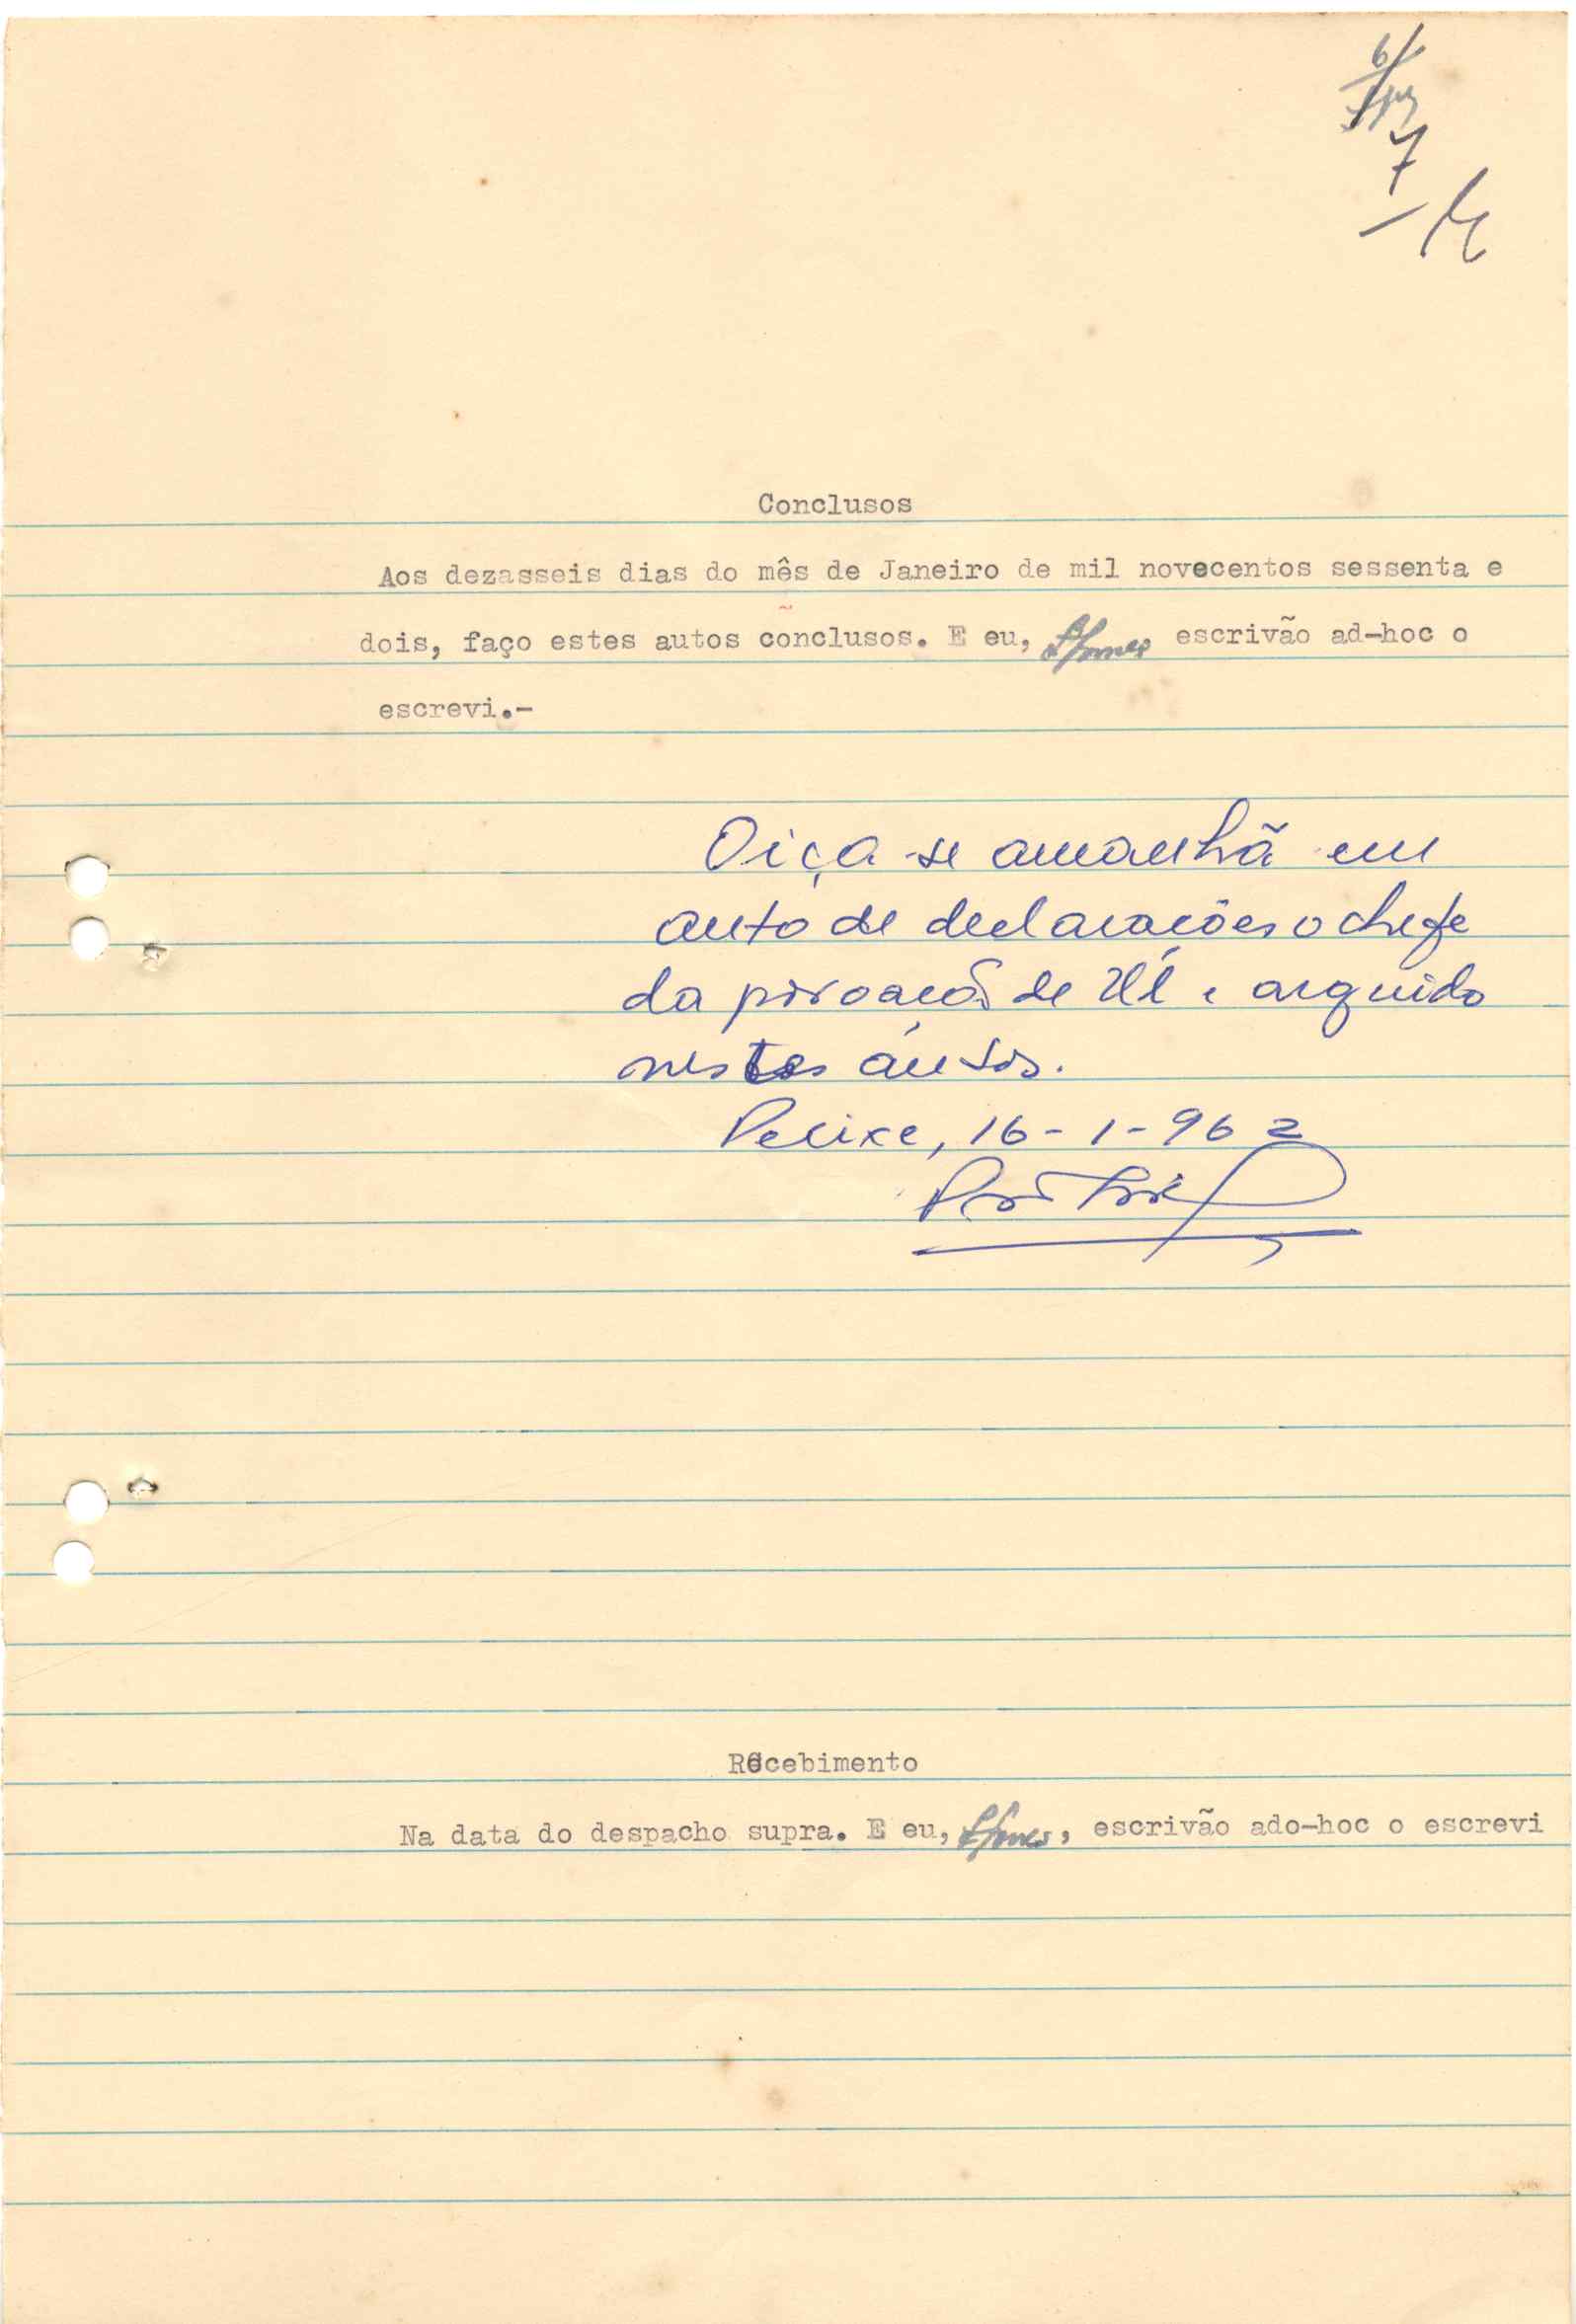 6
7
Conclusos
Aos dezasseis dias do mês de Janeiro de mil novecentos sessenta e
dois, faço estes autos conclusos. E eu, escrivão ad-hoc o
escrevi.-
Oiça-se amanhã em
auto de declarações o chefe
da povoação de e arguido
nestes autos.
16-1-962
Recebimento
Na data do despacho supra. E eu, , escrivão ado-hoc o escrevi